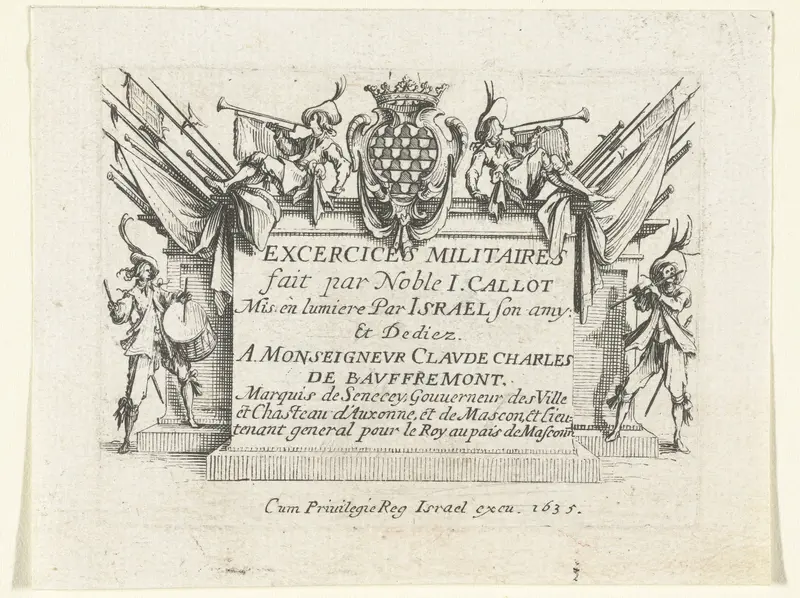 EXCERCICES MILITAIRES
fait par Noble I. CALLOT
Mis en lumiere Par ISRAEL son amy:
Et Dediez.
A. MONSEIGNEVR CLAVDE CHARLES
DE BAVFFREMONT.
Marquis de Senecey, Gouuerneur des Ville
et Chasteau d'Auxonne, et de Mascon, et Lieu-
tenant general pour le Roy au pais de Masconn
Cum Priuilegie Reg Israel excu. 1635.